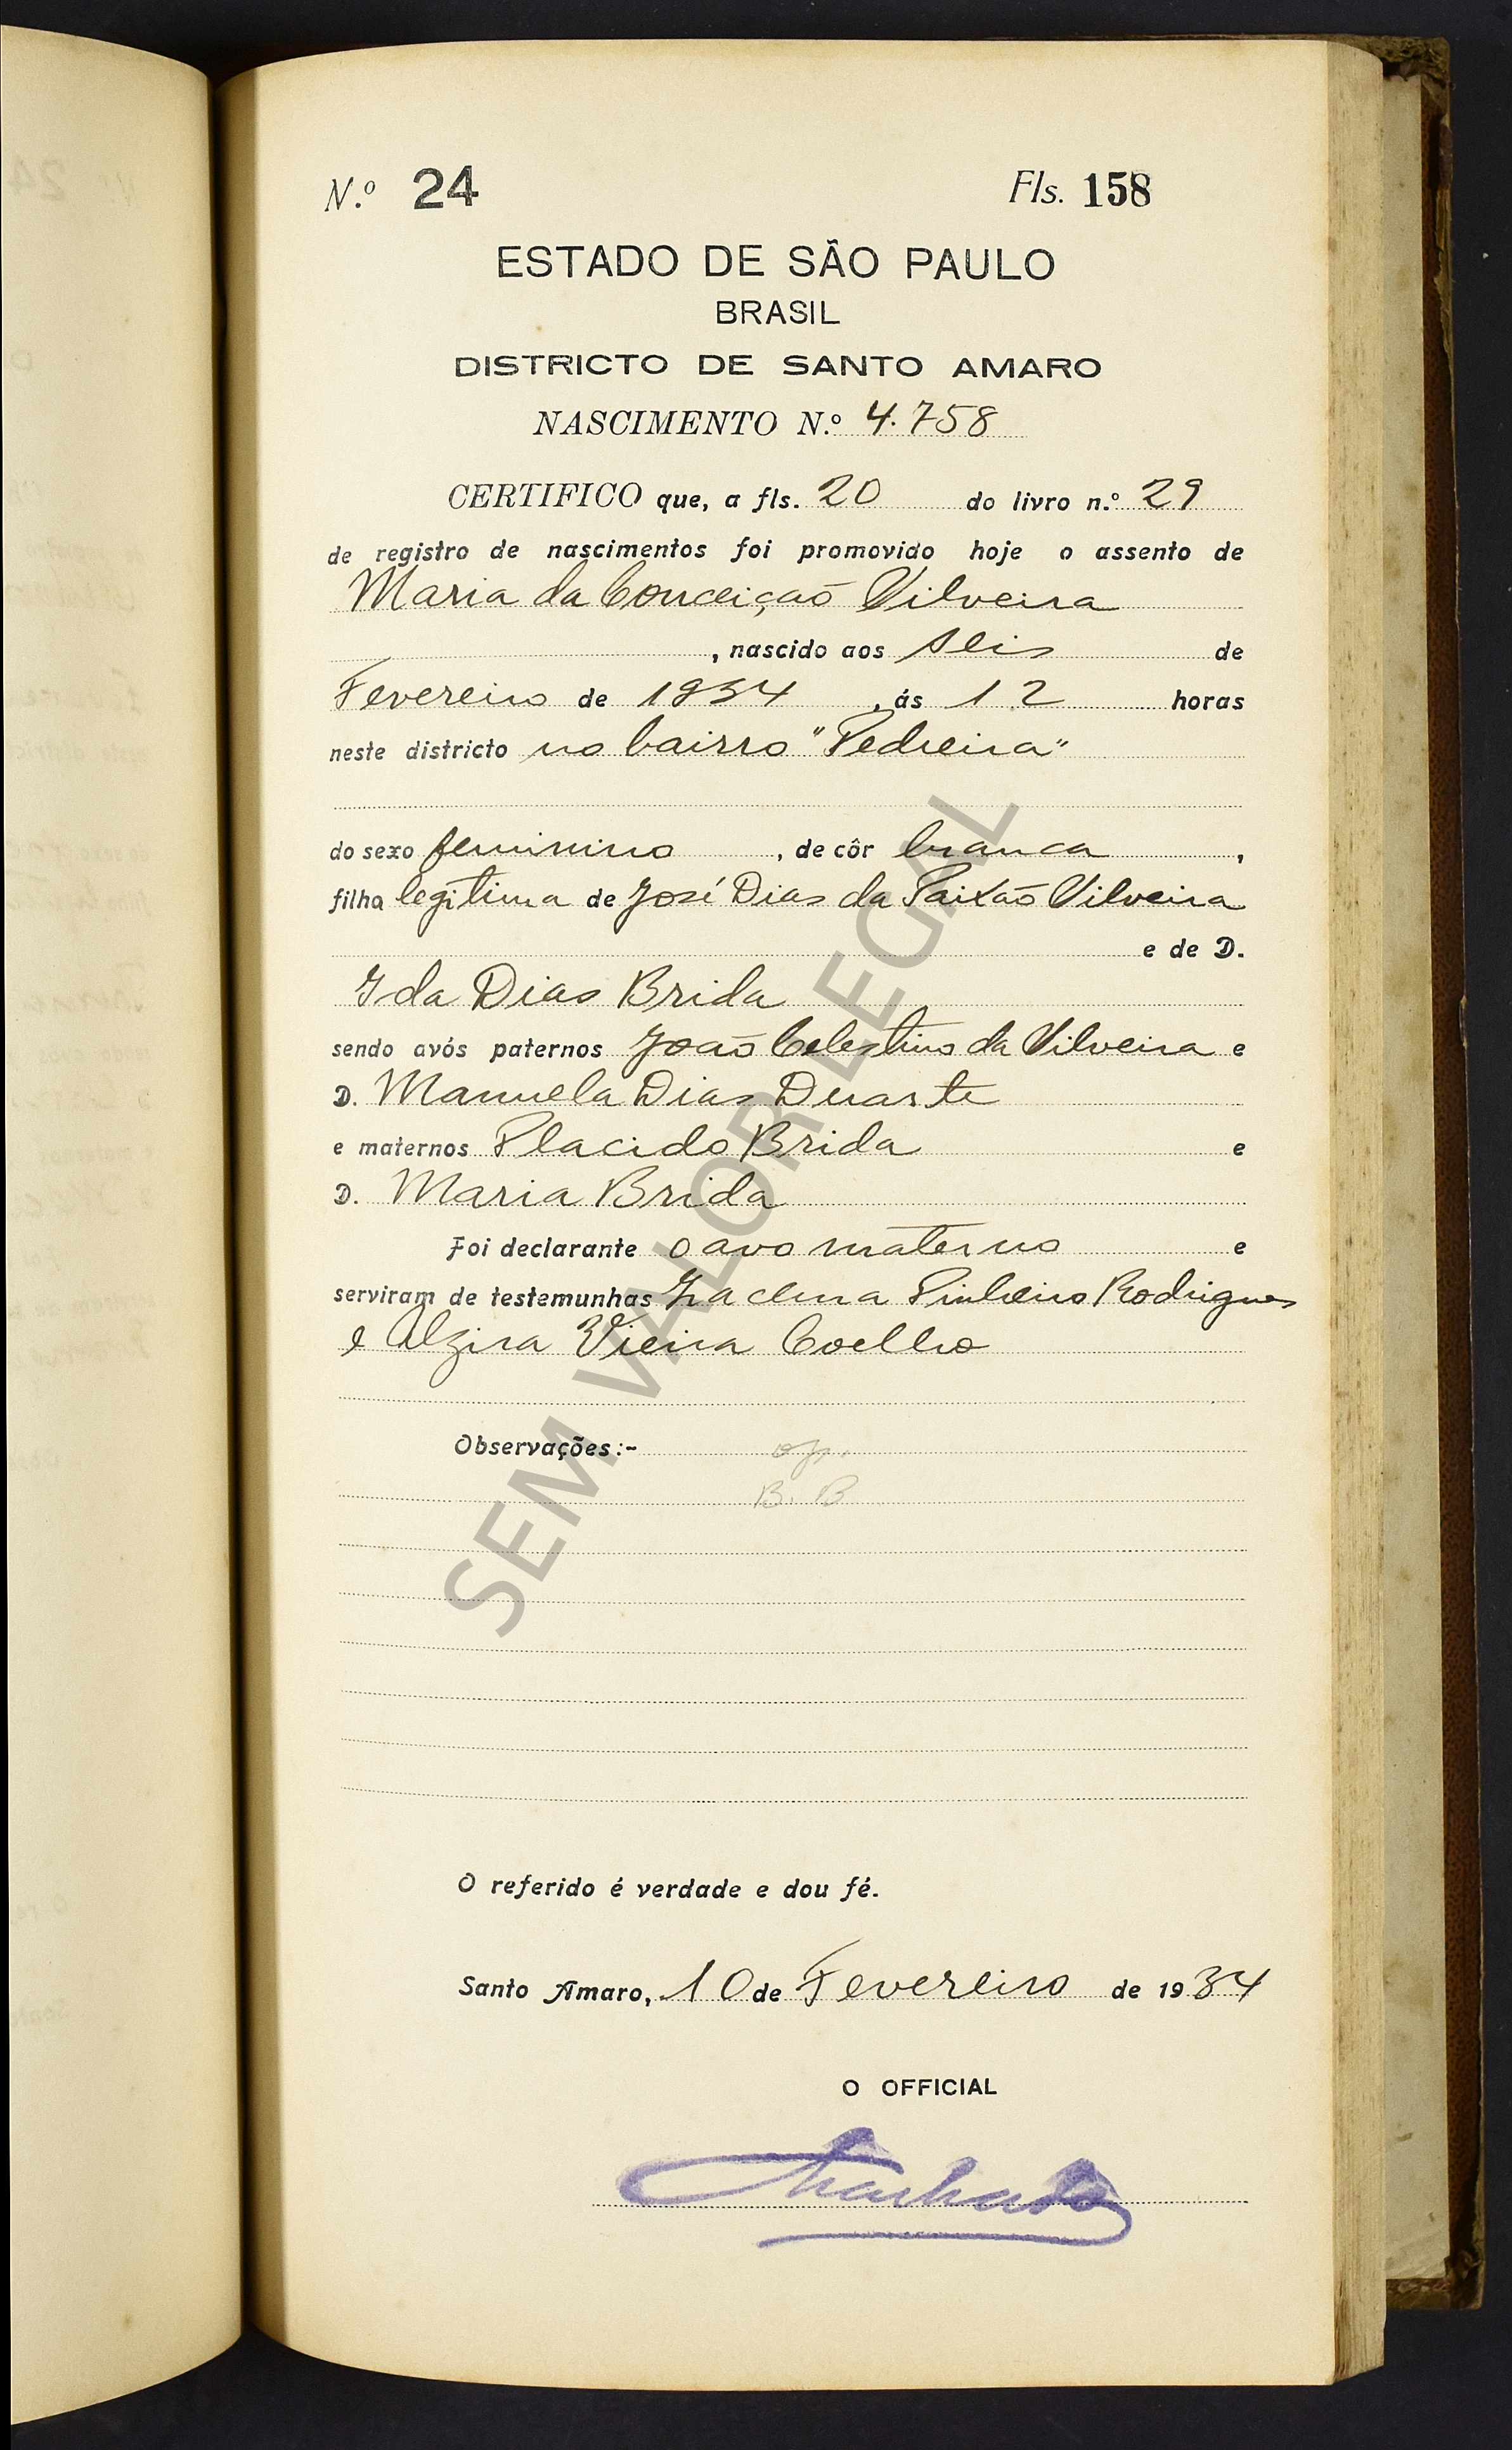 N.º 24 Fls. 158
ESTADO DE SÃO PAULO
BRASIL
DISTRICTO DE SANTO AMARO
NASCIMENTO N.º 4.758
CERTIFICO que, a fls. 20 do livro n.º 29
de registro de nascimentos foi promovido hoje o assento de
Maria da Conceição Silveira
, nascido aos seis de
Fevereiro de 1934, ás 12 horas
neste districto no bairro "Pedreira"
do sexo feminino, de côr branca,
filha legitima de José Dias da Paixão Silveira
e de D.
Ida Dias Brida
sendo avós paternos João Celestino da Silveira e
D. Manuela Dias Duarte
e maternos Placido Brida e
D. Maria Brida
Foi declarante o avo materno e
serviram de testemunhas Pinheiro Rodrigues
e Alzira Vieira Coelho
Observações:-
B. B
O referido é verdade e dou fé.
Santo Amaro, 10 de Fevereiro de 1934
O OFFICIAL
Machado
SEM VALOR LEGAL